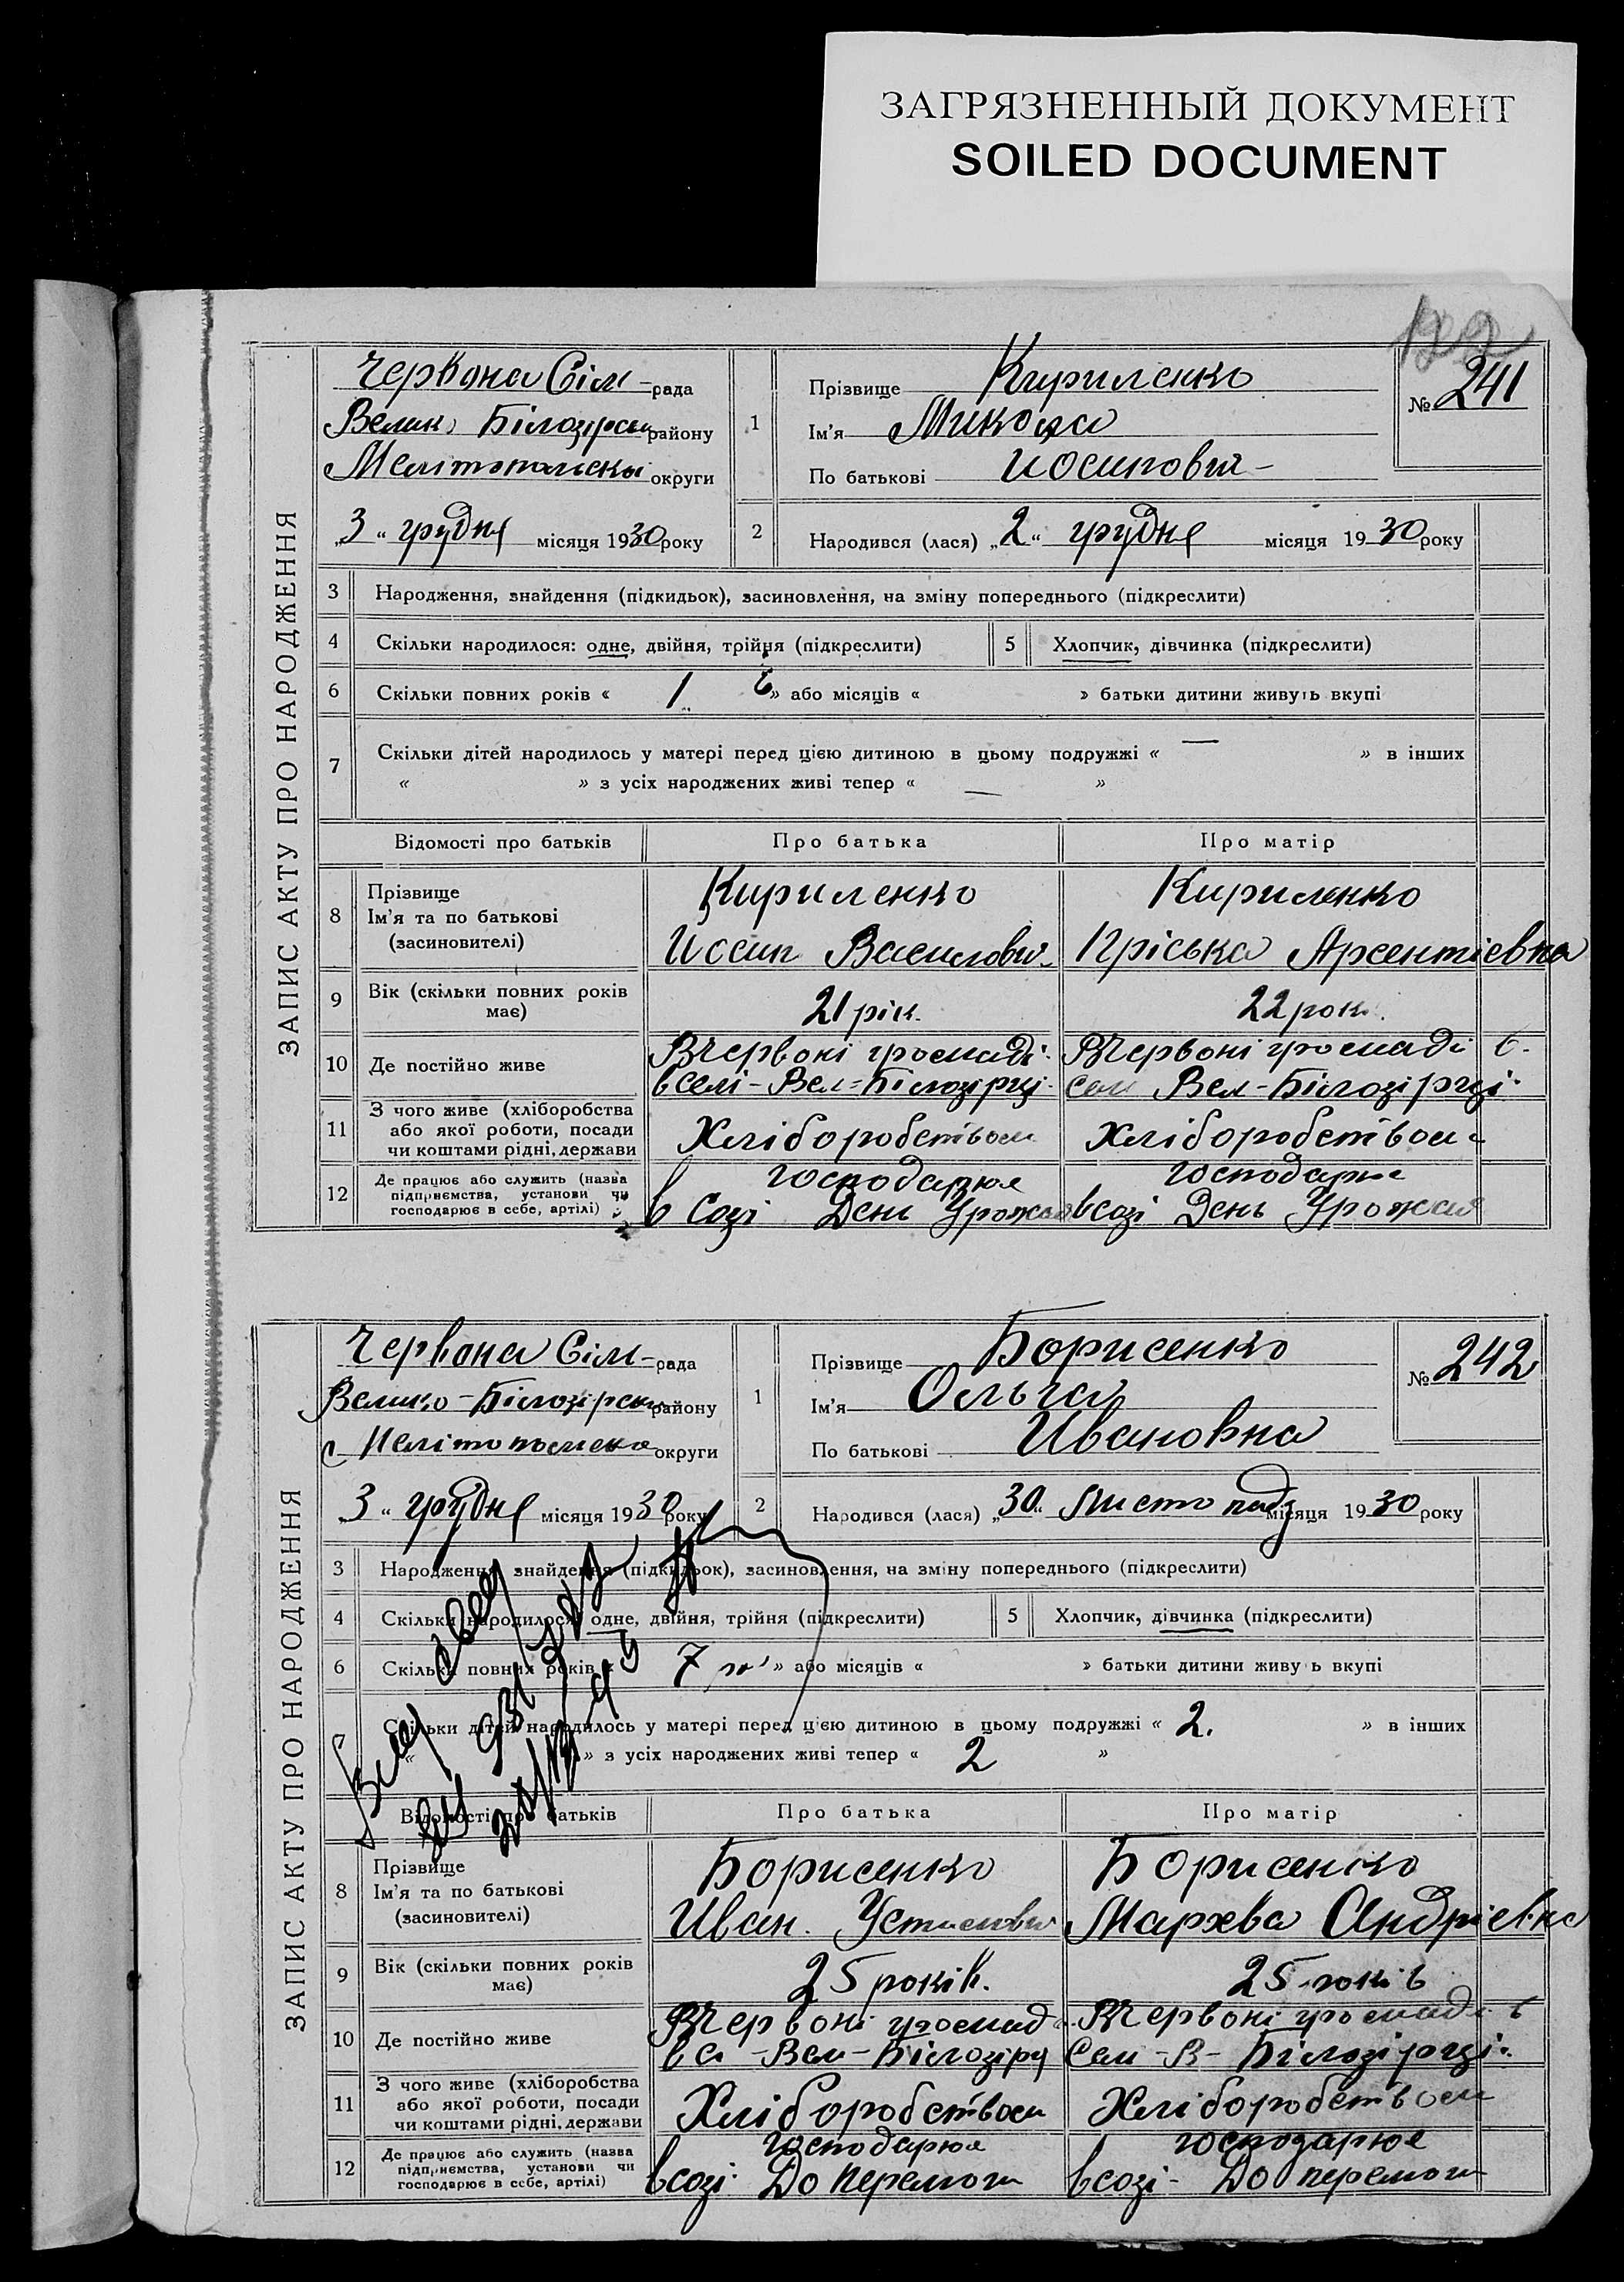 ЗАГРЯЗНЕННЫЙ ДОКУМЕНТ
SOILED DOCUMENT
122
ЗАПИС АКТУ ПРО НАРОДЖЕННЯ
Червона Сіл - рада
Велик Білозірськ району
Мелітопольськ округи
„3“ грудня місяця 1930 року
1
Прізвище Кириленко
Ім'я Микола
По батькові Иосипович
№ 241
2
Народився (лася) „2“ грудня місяця 1930 року
3 Народження, знайдення (підкидьок), засиновлення, на зміну попереднього (підкреслити)
4 Скільки народилося: одне, двійня, трійня (підкреслити) 5 Хлопчик, дівчинка (підкреслити)
6 Скільки повних років « 1 » або місяців « » батьки дитини живуть вкупі
7 Скільки дітей народилось у матері перед цією дитиною в цьому подружжі « — » в інших
« » з усіх народжених живі тепер « — »
Відомості про батьків Про батька Про матір
8 Прізвище Ім'я та по батькові (засиновителі)
Кириленко Кириленко
Иосип Василович Пріська Арсентіевна
9 Вік (скільки повних років має) 21 рік. 22 рок.
10 Де постійно живе
В Червоні громаді В Червоні громаді в
в селі - Вел-Білозірці сел Вел-Білозірці
11 З чого живе (хліборобства або якої роботи, посади чи коштами рідні, держави
Хліборобством Хліборобством
12 Де працює або служить (назва підприємства, установи чи господарює в себе, артілі)
господарює господарює
в Созі День Урожая в созі День Урожая
ЗАПИС АКТУ ПРО НАРОДЖЕННЯ
Червона Сіл - рада
Велико-Білозірськ району
Мелітопольска округи
„3“ грудня місяця 1930 року
1
Прізвище Борисенко
Ім'я Ольга
По батькові Ивановна
№ 242
2
Народився (лася) „30“ листопад місяця 1930 року
3 Народження, знайдення (підкидьок), засиновлення, на зміну попереднього (підкреслити)
4 Скільки народилося: одне, двійня, трійня (підкреслити) 5 Хлопчик, дівчинка (підкреслити)
6 Скільки повних років « 7 » або місяців « » батьки дитини живуть вкупі
7 Скільки дітей народилось у матері перед цією дитиною в цьому подружжі « 2. » в інших
« » з усіх народжених живі тепер « 2 »
Відомості про батьків Про батька Про матір
8 Прізвище Ім'я та по батькові (засиновителі)
Борисенко Борисенко
Иван Мархва Андріевна
9 Вік (скільки повних років має) 25 років. 25 років
10 Де постійно живе
В Червоні громад В Червоні громаді в
в с -Вел-Білозірц Сел -В- Білозірці
11 З чого живе (хліборобства або якої роботи, посади чи коштами рідні, держави
Хліборобством Хліборобством
12 Де працює або служить (назва підприємства, установи чи господарює в себе, артілі)
господарює господарює
в созі До перемоги в созі - До перемоги